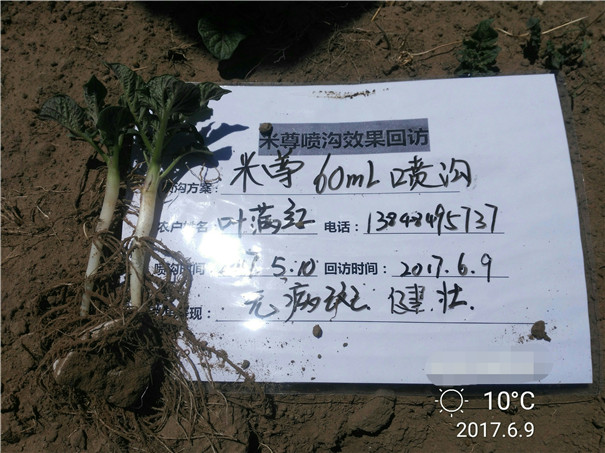 米尊喷沟效果回访
沟方案: 米尊 60mL 喷沟
农户姓名: 叶满红 电话: 13848495737
喷沟时间 2017.5.10 回访时间: 2017.6.9
现: 无病斑 健壮
10°C
2017.6.9